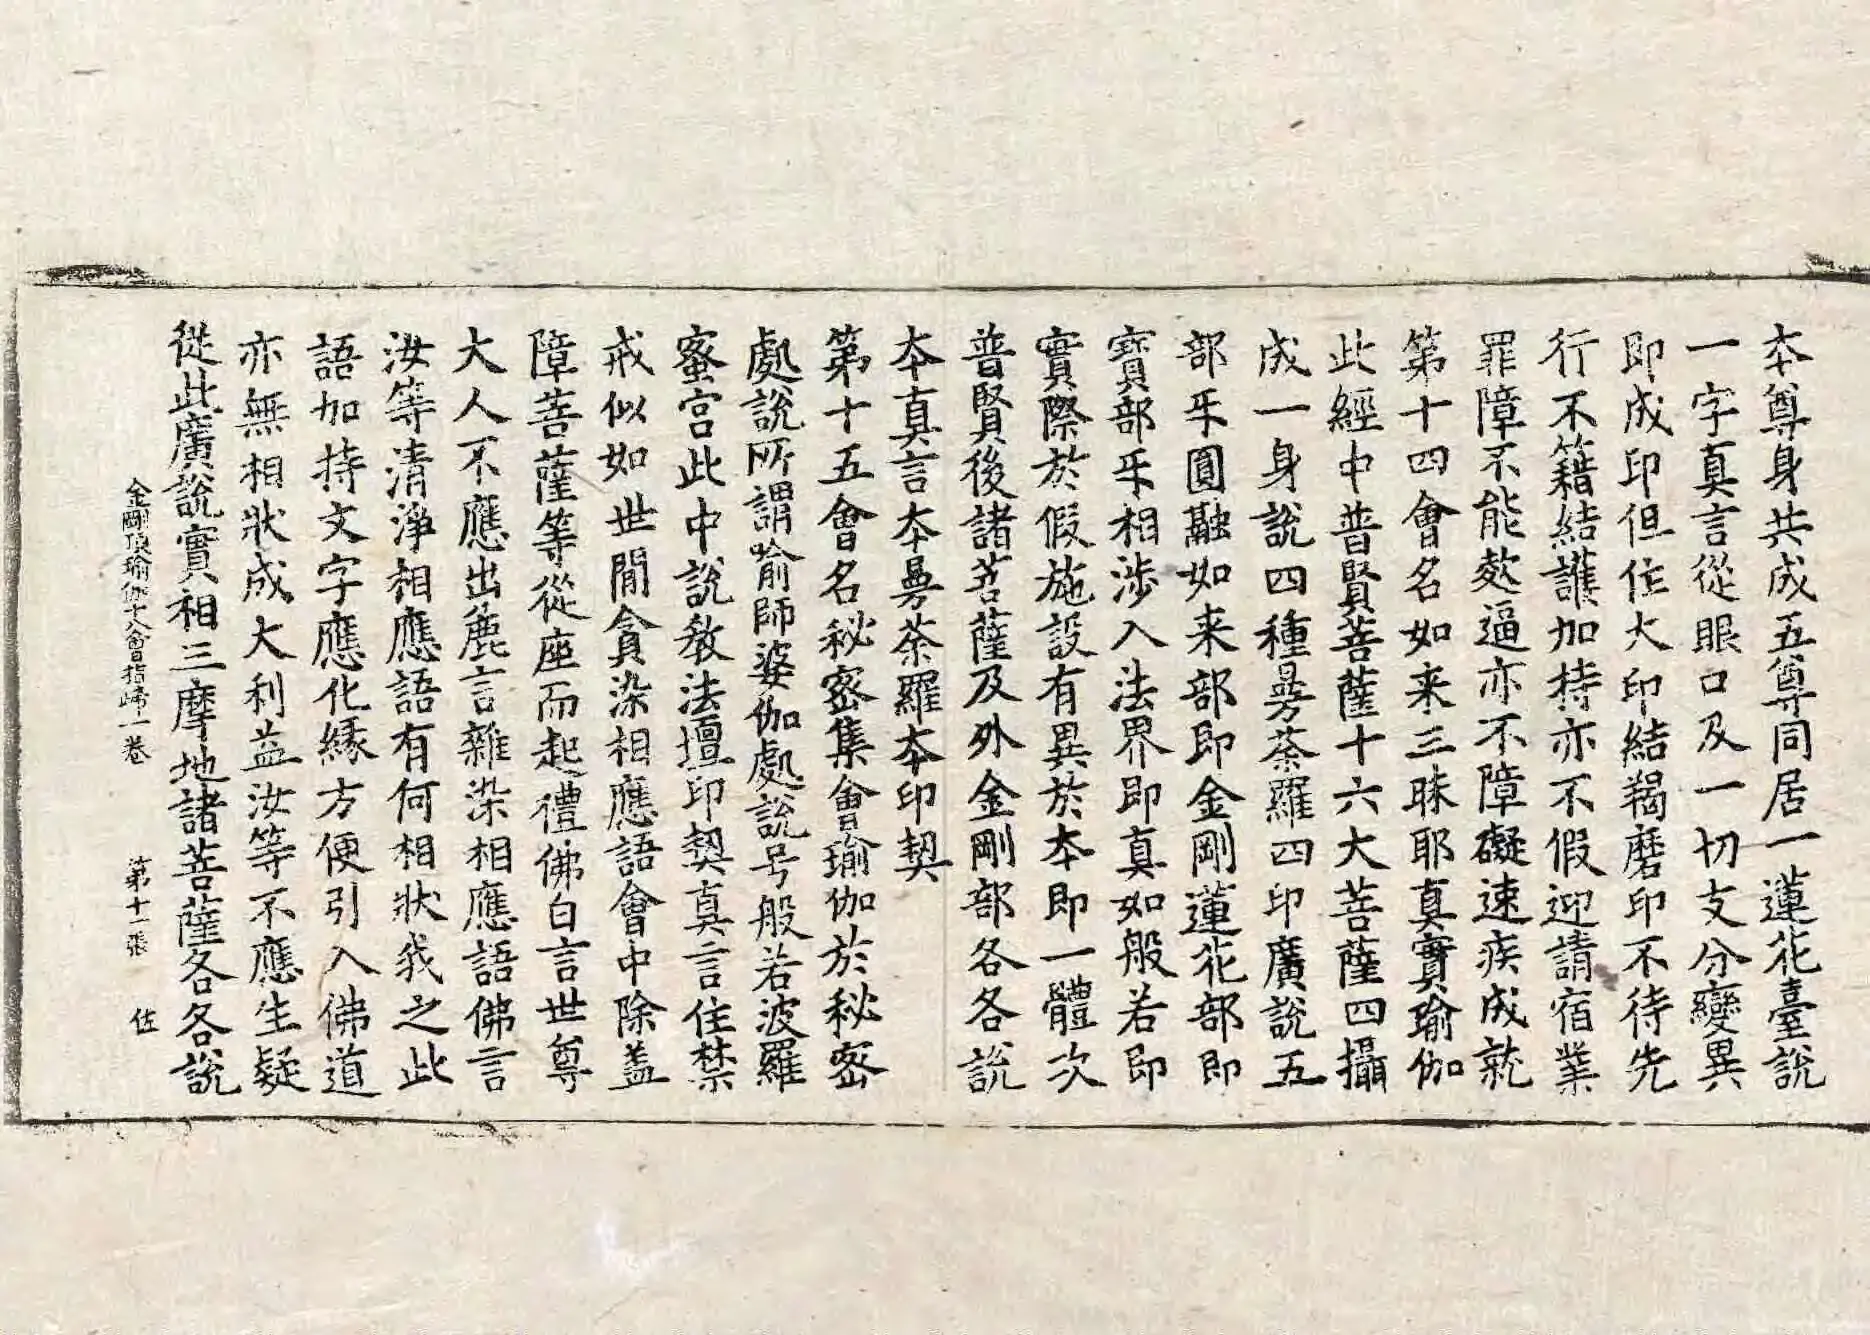 夲尊身共成五尊同居一蓮花臺說
一字真言從眼口及一切支分變異
即成印但住大印結羯磨印不待先
行不籍結護加持亦不假迎請宿業
罪障不能㱾逼亦不障礙速疾成就
第十四會名如来三昧耶真實瑜伽
此經中普賢菩薩十六大菩薩四攝
成一身說四種曼荼羅四印廣說五
部㸦圓融如来部即金剛蓮花部即
寶部㸦相涉入法界即真如般若即
實際於假施設有異於夲即一體次
普賢後諸菩薩及外金剛部各各說
夲真言夲曼荼羅夲印契
第十五會名秘密集會瑜伽於秘密
處說所謂喻師婆伽處說号般若波羅
蜜宫此中說教法壇印契真言住禁
戒似如世間貪染相應語會中除盖
障菩薩等從座而起禮佛白言世尊
大人不應出麁言雜染相應語佛言
汝等清淨相應語有何相狀我之此
語加持文字應化縁方便引入佛道
亦無相狀成大利益汝等不應生疑
從此廣說實相三摩地諸菩薩各各說
金剛頂瑜伽十八會指歸一卷 第十一張 佐